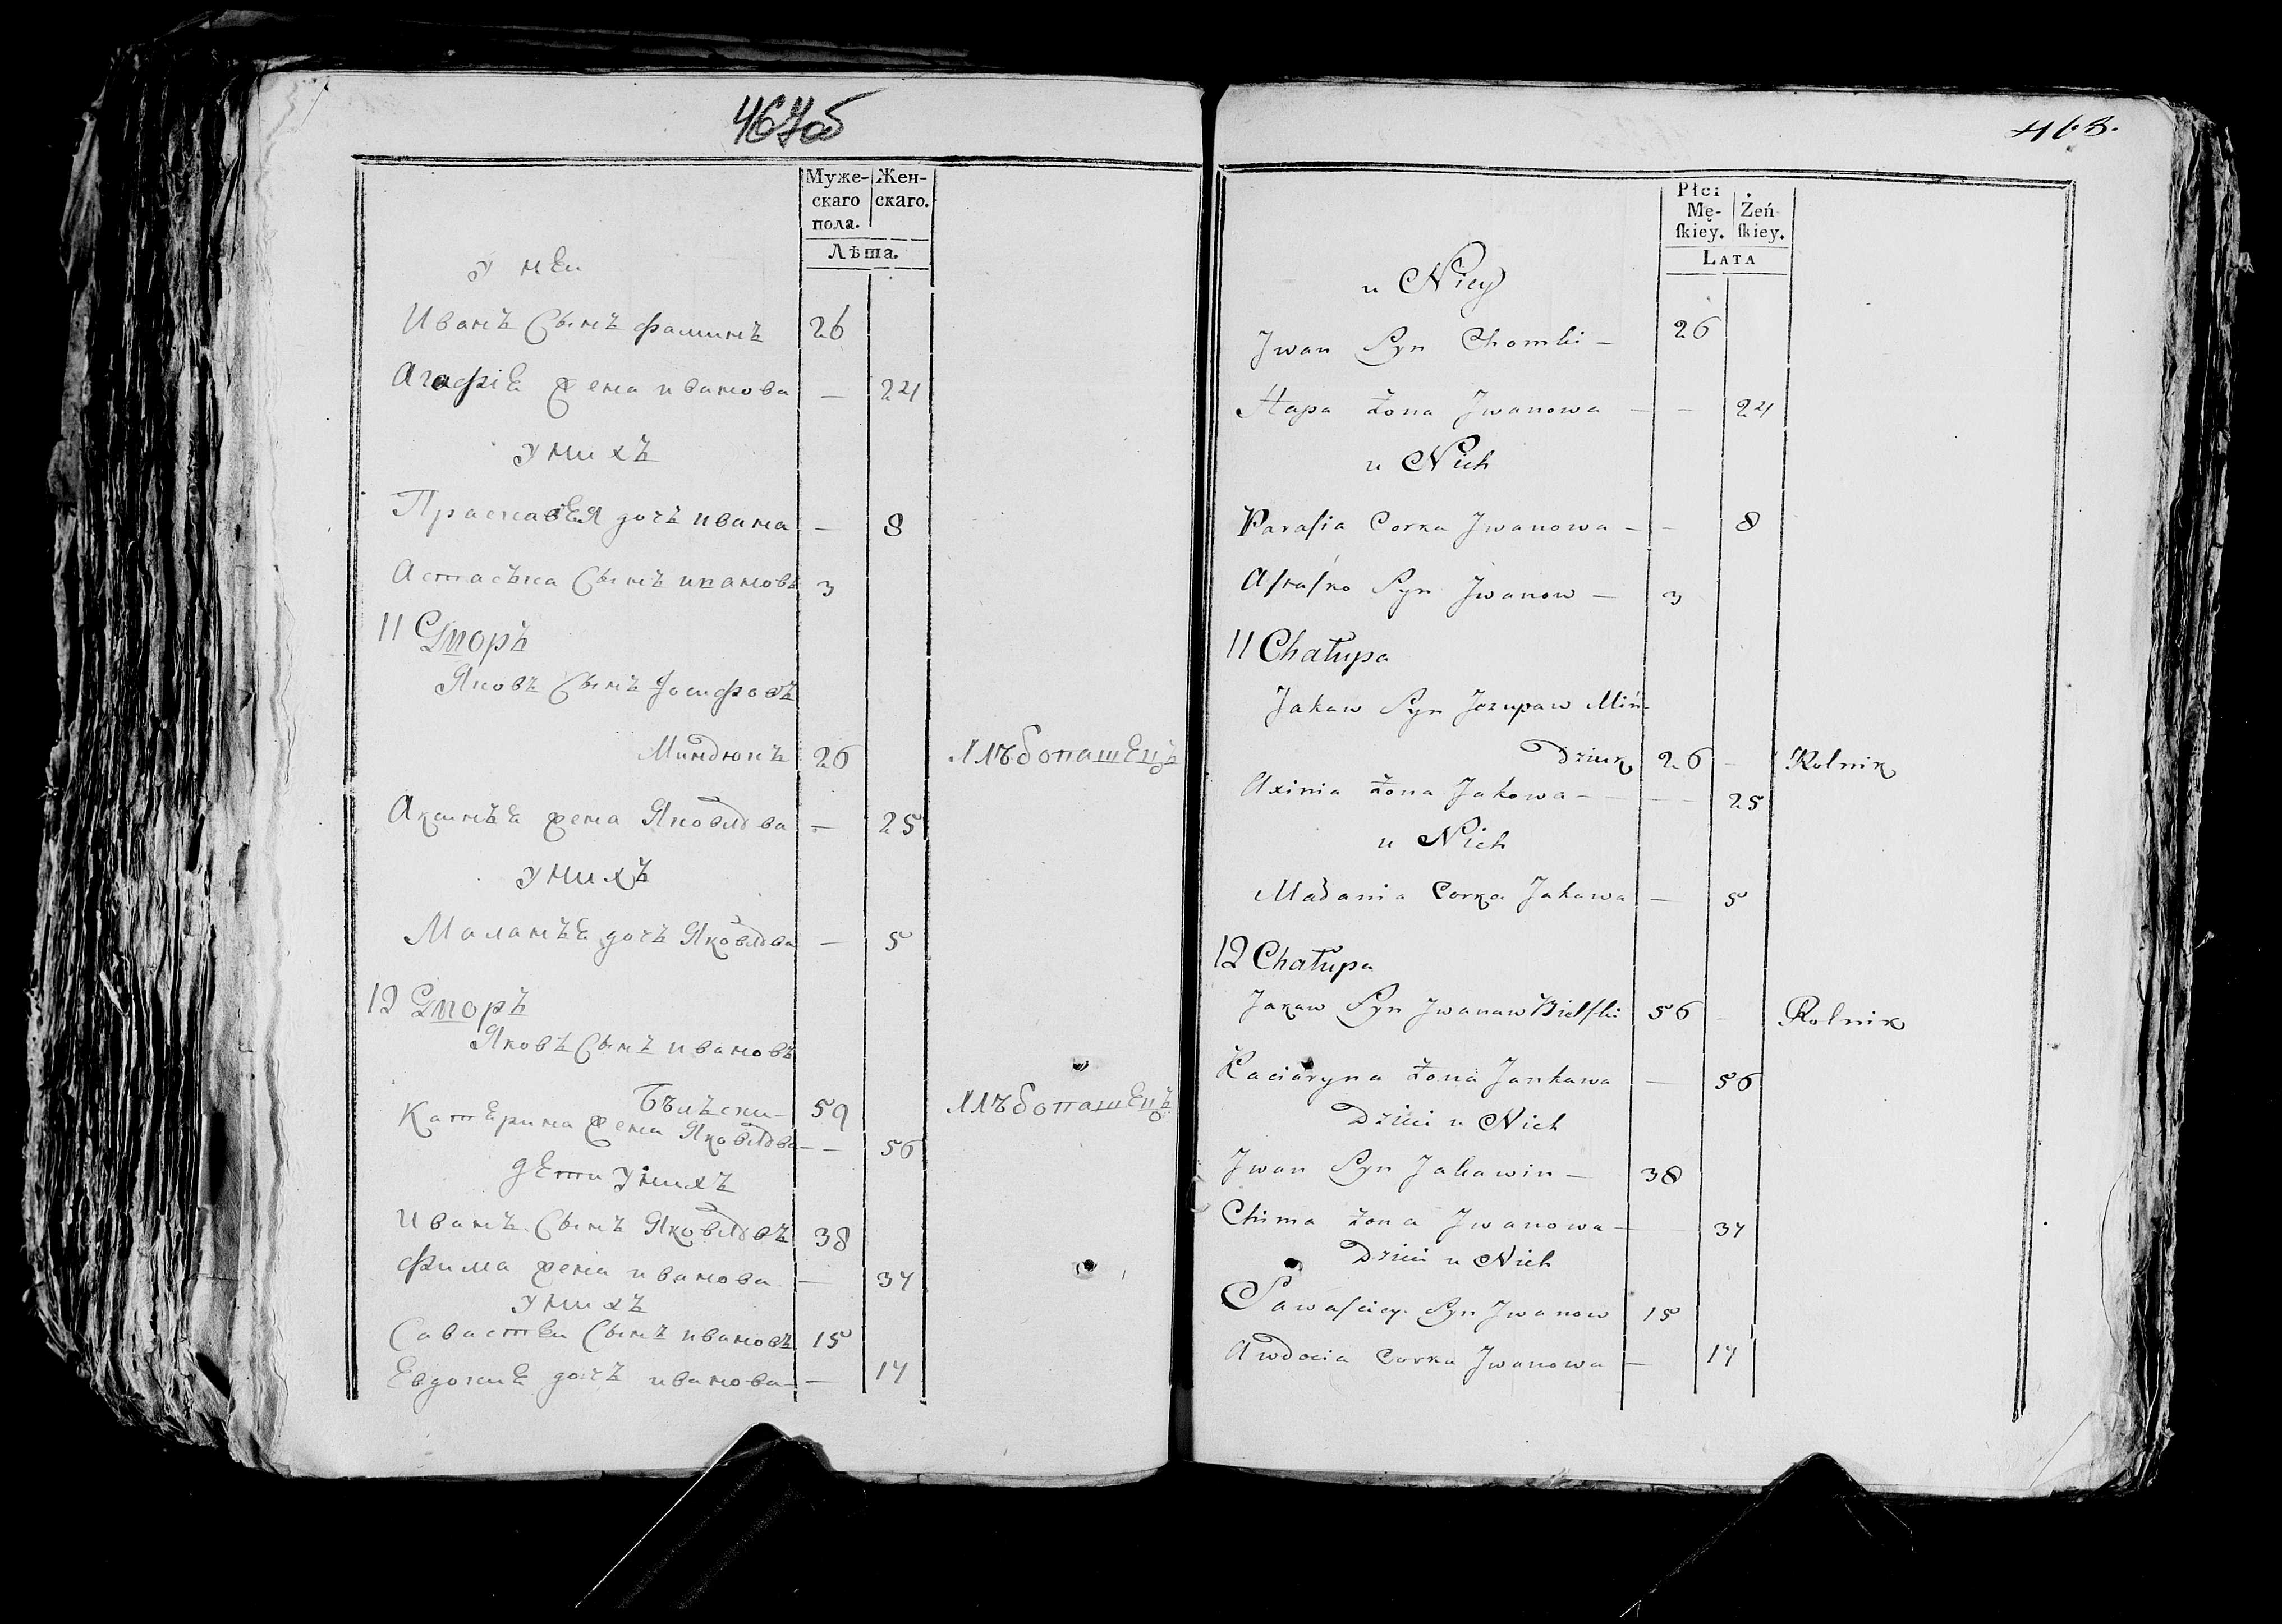 467об
Муже-
скаго
пола.
Жен-
скаго.
Лѣта.
у неи
Иванъ Сынъ Фаминъ 26
Агафіе жена иванова — 24
у нихъ
Прасковея дочъ ивана — 8
Астасъка Сынъ ивановъ 3
11 Дворъ
Яковъ Сынъ Иосифовъ
Миндюкъ 26 хлѣбопашецъ
Аксинъе жена Яковлева — 25
у нихъ
Маланъе дочъ Яковлева — 5
12 Дворъ
Яковъ Сынъ ивановъ
Бѣлъски 59 хлѣбопашецъ
Катерина жена Яковлева — 56
дети у нихъ
Иванъ Сынъ Яковлевъ 38
Фима жена иванова — 34
у нихъ
Савастеи Сынъ ивановъ 15
Евдокие дочъ иванова — 14
468.
Płci
Mę-
ſkiey.
Żeń-
ſkiey.
LATA
u Niey
Jwan Syn Chomki — 26
Hapa żona Jwanowa — — 24
u Nich
Paraſia Corka Jwanowa — — 8
Aſtaſko Syn Jwanow — 3
11 Chałupa
Jakaw Syn Jozupaw Miń-
Dziuk 26 — Rolnik
Axinia żona Jakowa — — 25
u Nich
Małania Corka Jakawa — 5
12 Chałupa
Jakaw Syn Jwanaw Bielſki 56 — Rolnik
Kaciaryna żona Jankawa — 56
Dzieci u Nich
Jwan Syn Jakawin — 38
Chima żona Jwanowa — 34
Dzieci u Nich
Sawaſciey Syn Jwanow 15
Awdocia Corka Jwanowa — 14